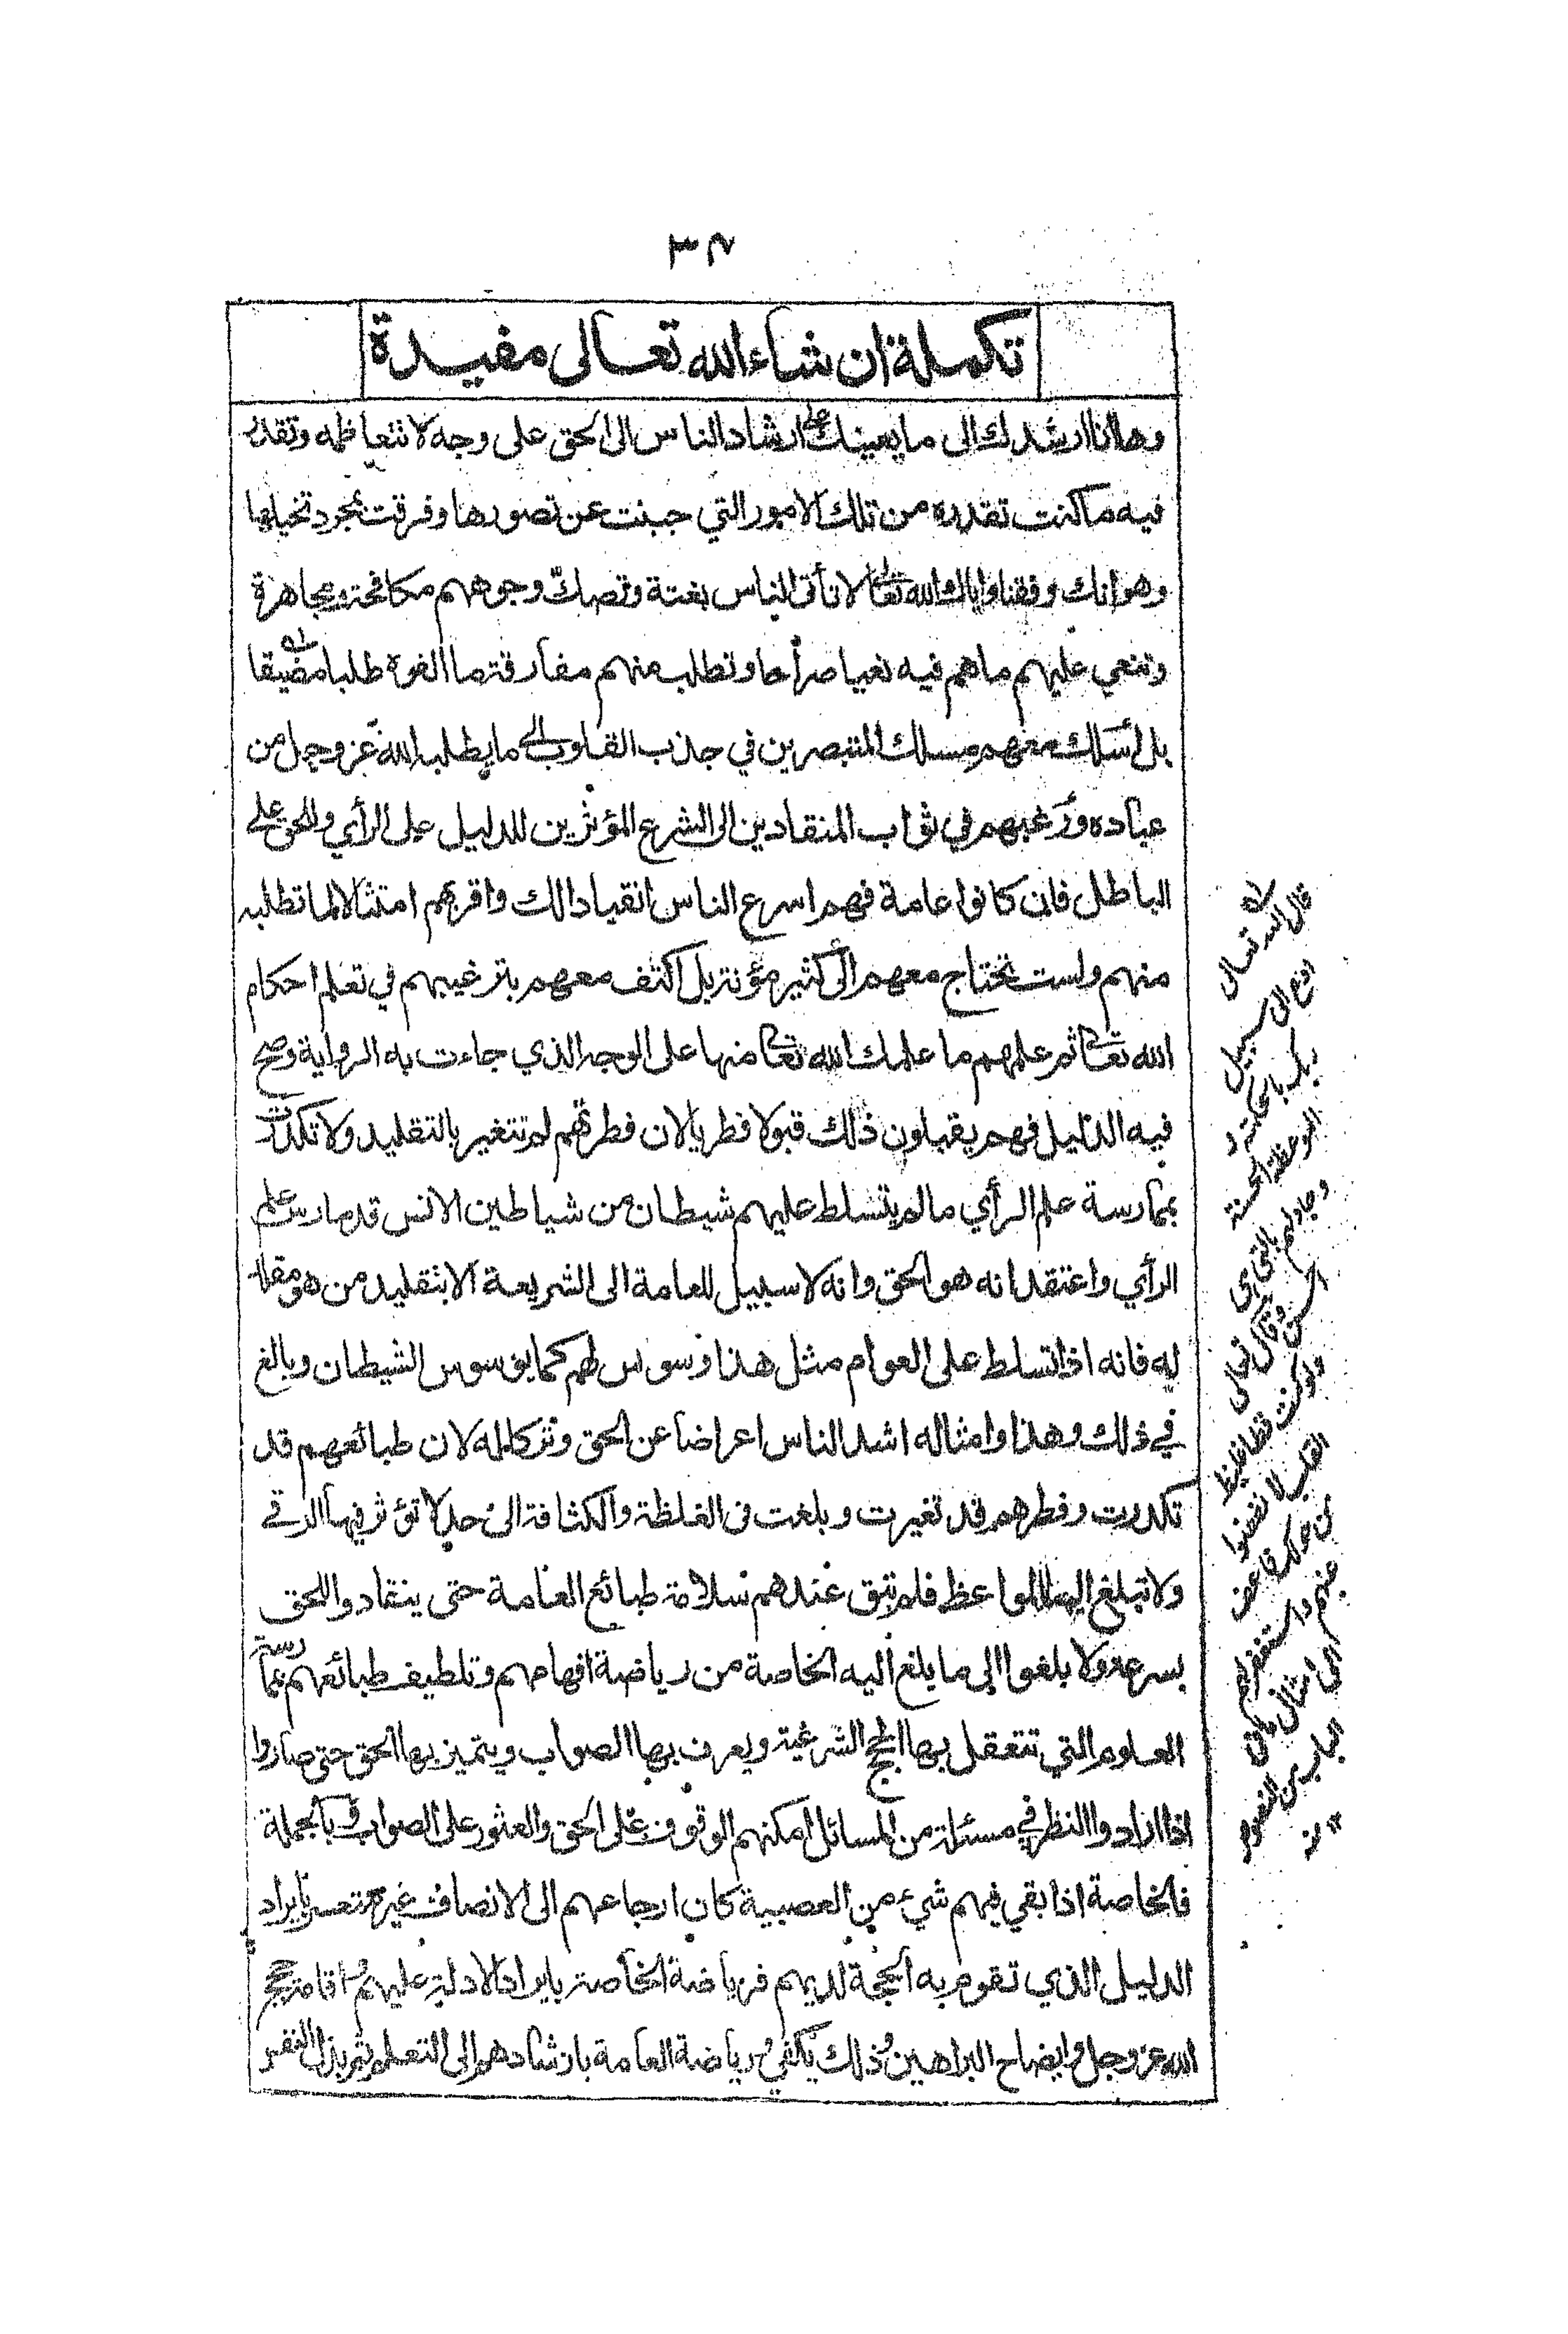 ٣٨
تكملة ان شاء الله تعالى مفيدة
وها انا ارشدك الى ما يعينك على ارشاد الناس الى الحق على وجه لا تتعاظمه وتقدر
فيه ما كنت تقدره من تلك الامور التي جبنت عن تصورها وفرقت بمجرد تخيلها
وهو انك وفقنا واياك الله تعالى لا تأتي الناس بغتة وتصك وجوههم مكافحة ومجاهرة
وتنعي عليهم ما هم فيه نعيا صراحا وتطلب منهم مفارقة ما الفوه طلبا مضيقا
بل اسلك معهم مسلك المتبصرين في جذب القلوب الى ما يطلبه الله عز وجل من
عباده ورغبهم في ثواب المنقادين الى الشرع المؤثرين للدليل على الرأي وللحق على
الباطل فان كانوا عامة فهم اسرع الناس انقيادا لك واقربهم امتثالا لما تطلبه
منهم ولست تحتاج معهم الى كثير مؤنة بل اكتف معهم بترغيبهم في تعلم احكام
الله تعالى ثم علمهم ما علمك الله تعالى منها على الوجه الذي جاءت به الرواية وصح
فيه الدليل فهم يقبلون ذلك قبولا فطريا لان فطرتهم لم تتغير بالتقليد ولا تكدرت
بممارسة علم الرأي ما لم يتسلط عليهم شيطان من شياطين الانس قد مارس علم
الرأي واعتقد انه هو الحق وانه لا سبيل للعامة الى الشريعة الا بتقليد من هو مقلد
له فانه اذا تسلط على العوام مثل هذا وسوس لهم كما يوسوس الشيطان وبالغ
في ذلك وهذا وامثاله اشد الناس اعراضا عن الحق وتركا له لان طبائعهم قد
تكدرت وفطرهم قد تغيرت وبلغت في الغلظة والكثافة الى حد لا تؤثر فيها الرقى
ولا تبلغ اليها المواعظ فلم تبق عندهم سلامة طبائع العامة حتى ينقادوا للحق
بسرعة ولا بلغوا الى ما بلغ اليه الخاصة من رياضة افهامهم وتلطيف طبائعهم بممارسة
العلوم التي تتعقل بها الحجج الشرعية ويعرف بها الصواب ويتميز بها الحق حتى صاروا
اذا ارادوا النظر في مسئلة من المسائل امكنهم الوقوف على الحق والعثور على الصواب وبالجملة
فالخاصة اذا بقي فيهم شيء من العصبية كان ارجاعهم الى الانصاف غير متعسر بايراد
الدليل الذي تقوم به الحجة لديهم فرياضة الخاصة بايراد الادلة عليهم واقامة حجج
الله عز وجل وايضاح البراهين وذلك يكفي ورياضة العامة بارشادهم الى التعلم ثم بذل النفس
قال الله تعالى
ادع الى سبيل
ربك بالحكمة و
الموعظة الحسنة
وجادلهم بالتي هي
احسن وقال تعالى
ولو كنت فظا غليظ
القلب لا نفضوا
من حولك فاعف
عنهم واستغفر لهم